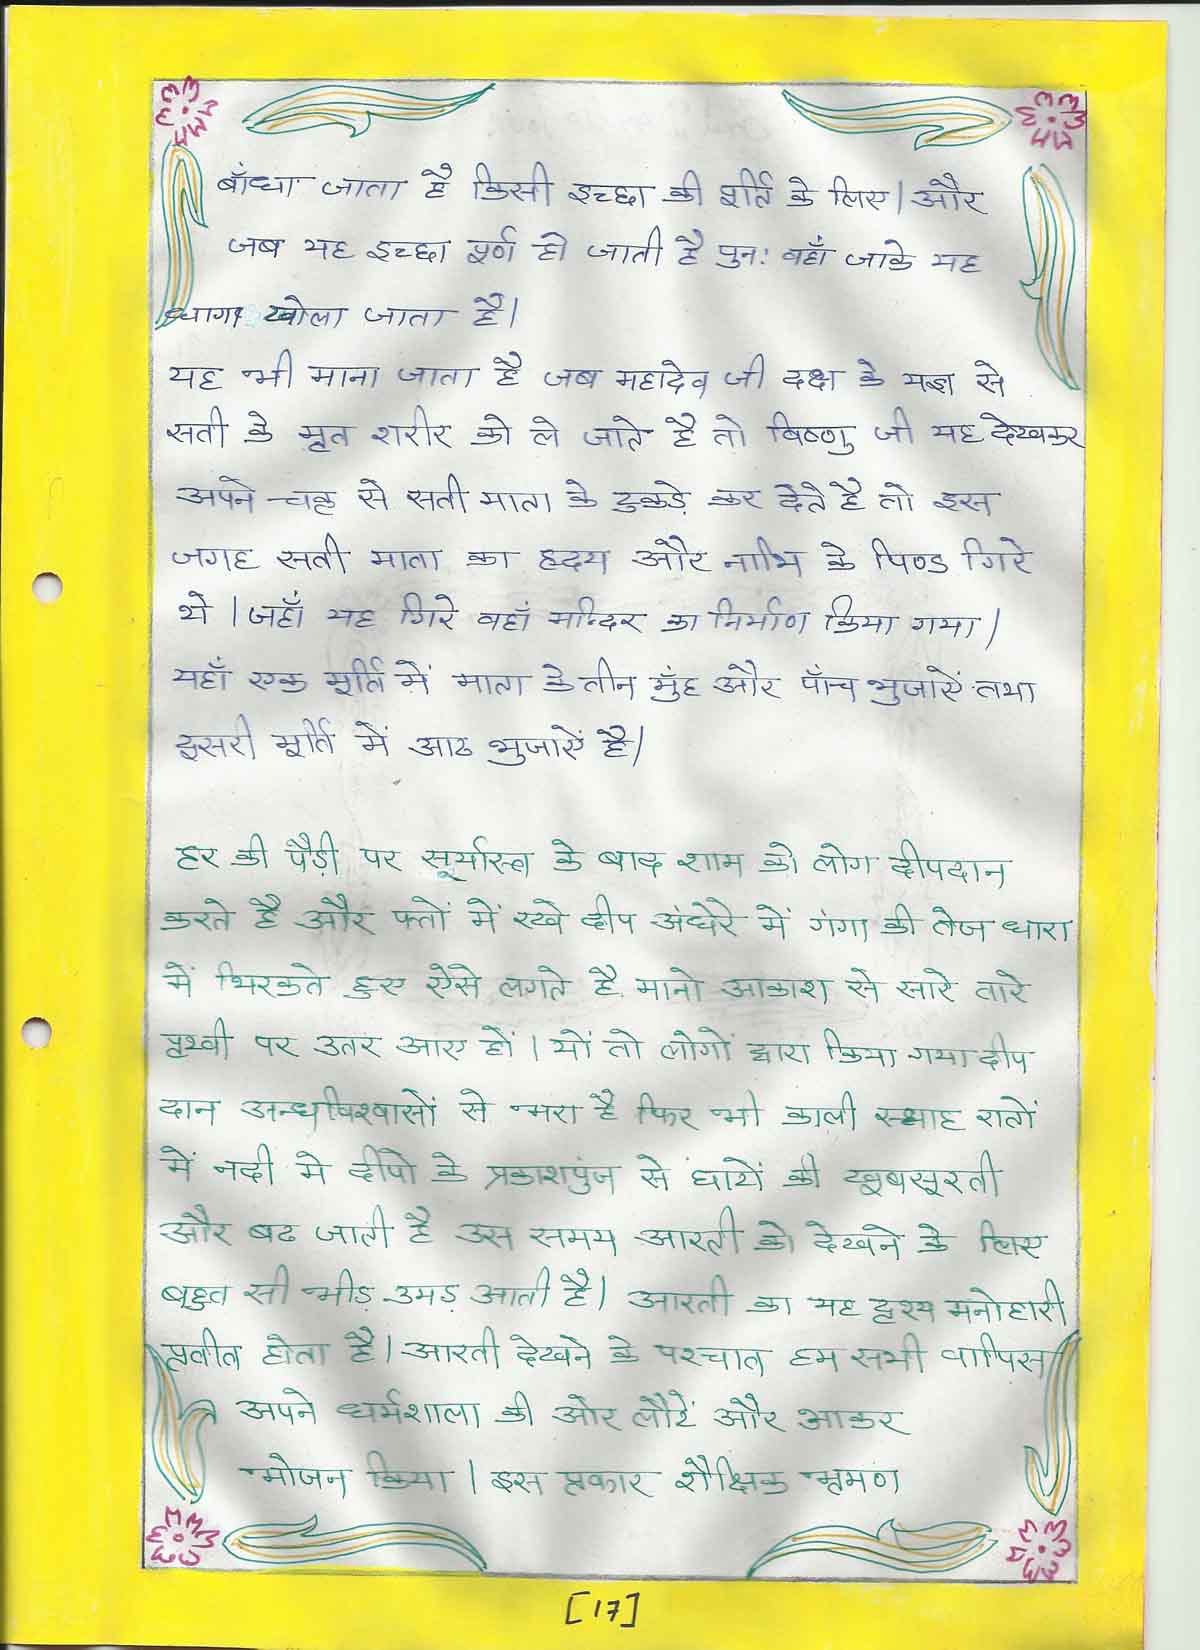 बाँधा जाता है किसी इच्छा की र्शति के लिए। और
जब यह इच्छा पूर्ण हो जाती है पुनः वहाँ जाके यह
धागा खोला जाता है।
यह भी माना जाता है जब महादेव जी दक्ष के यज्ञ से
सती के मृत शरीर को ले जाते है तो विष्णु जी यह देखकर
अपने चक्र से सती माता के टुकड़े कर देते है तो इस
जगह सती माता का हृदय और नाभि के पिण्ड गिरे
थे। जहाँ यह गिरे वहाँ मन्दिर का निर्माण किया गया।
यहाँ एक मूर्ति में माता के तीन मुँह और पाँच भुजाऐं तथा
दुसरी मूर्ति में आठ भुजाऐं है।
हर की पैड़ी पर सूर्यास्त के बाद शाम को लोग दीपदान
करते है और पत्तों में रखे दीप अंधेरे में गंगा की तेज धारा
में थिरकते हुए ऐसे लगते है मानो आकाश से सारे तारे
पृथ्वी पर उतर आए हों। यों तो लोगों द्वारा किया गया दीप
दान अन्धविश्वासों से भरा है फिर भी काली स्याह रातों
में नदी मे दीपो के प्रकाशपुंज से घाटों की खूबसूरती
और बढ जाती है उस समय आरती को देखने के लिए
बहुत सी भीड़ उमड़ आती है। आरती का यह दृश्य मनोहारी
प्रतीत होता है। आरती देखने के पश्चात हम सभी वापिस
अपने धर्मशाला की ओर लौटें और आकर
भोजन किया। इस प्रकार शैक्षिक भ्रमण
[17]